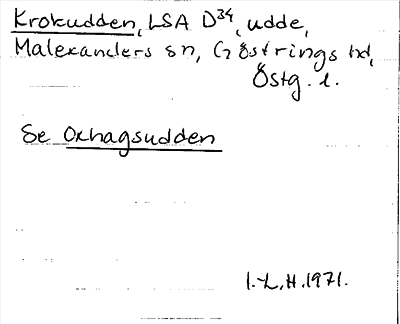 Krokudden, LSA D34, udde,
Malexanders sn, Göstrings hd,
Östg. l.
Se Oxhagsudden
I.L.H. 1971.